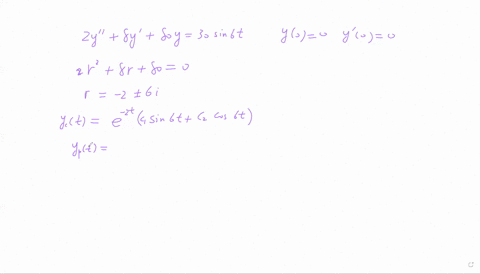 2y'' + 8y' + 80y = 30 sin 6t    y(0)=0  y'(0)=0
2r² + 8r + 80 = 0
r = -2 ± 6i
y_c(t) = e^{-2t}(c₁ sin 6t + c₂ cos 6t)
y_p(t) =